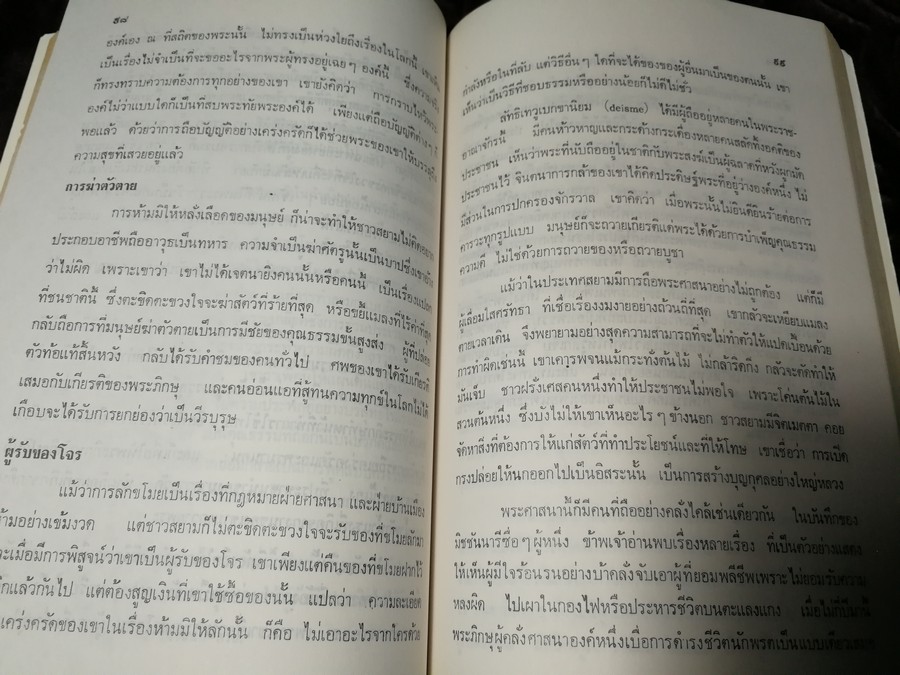 ๙๘
องค์เอง ณ ที่สถิตของพระนั้น ไม่ทรงเป็นห่วงใยถึงเรื่องในโลกนี้
เป็นเรื่องไม่จำเป็นที่จะขออะไรจากพระผู้ทรงอยู่เฉย ๆ องค์นี้ ซึ่งความจริง
ก็ทรงทราบความต้องการทุกอย่างของเขา เขายังคิดว่า การกราบไหว้พระ
องค์ไม่ว่าแบบใดก็เป็นที่สบพระทัยพระองค์ได้ เพียงแต่ถือบัญญัติต่าง ๆ ก็
พอแล้ว ด้วยว่าการถือบัญญัติอย่างเคร่งครัดก็ได้ช่วยพระของเขาให้บรรลุถึง
ความสุขที่เสวยอยู่แล้ว
การฆ่าตัวตาย
การห้ามมิให้หลั่งเลือดของมนุษย์ ก็น่าจะทำให้ชาวสยามไม่คิดอยาก
ประกอบอาชีพถืออาวุธเป็นทหาร ความจำเป็นฆ่าศัตรูนั้นเป็นบาปซึ่งเขา
ว่าไม่ผิด เพราะเขาว่า เขาไม่ได้เจตนายิงคนนั้นหรือคนนี้ เป็นเรื่องแปลก
ที่ชนชาตินี้ ซึ่งตะขิดตะขวงใจจะฆ่าสัตว์ที่ร้ายที่สุด หรือขยี้แมลงที่ไร้ค่าที่สุด
กลับถือการที่มนุษย์ฆ่าตัวตายเป็นการมีชัยของคุณธรรมขั้นสูงสง ผู้ที่ปล่อย
ตัวท้อแท้สิ้นหวัง กลับได้รับคำชมของคนทั่วไป ศพของเขาได้รับเกียรติ
เสมอกับเกียรติของพระภิกษุ และคนอ่อนแอที่สู้ทนความทุกข์ในโลกไม่ได้
เกือบจะได้รับการยกย่องว่าเป็นวีรบุรุษ
ผู้รับของโจร
แม้ว่าการลักขโมยเป็นเรื่องที่กฎหมายฝ่ายศาสนา และฝ่ายบ้านเมือง
ห้ามอย่างเข้มงวด แต่ชาวสยามก็ไม่ตะขิดตะขวงใจจะรับของที่ขโมยลักมา
และเมื่อมีการพิสูจน์ว่าเขาเป็นผู้รับของโจร เขาเพียงแต่คืนของที่ขโมยฝากไว้
ก็แล้วกันไป แต่ต้องสูญเงินที่เขาใช้ซื้อของนั้น แปลว่า ความละเอียด
เคร่งครัดของเขาในเรื่องห้ามมิให้ลักนั้น ก็คือ ไม่เอาอะไรจากใครด้วย
๙๙
กำลังหรือในที่ลับ แต่วิธีอื่น ๆ ใดที่จะได้ของของผู้อื่นมาเป็นของตนนั้น เขา
เห็นว่าเป็นวิธีที่ชอบธรรมหรืออย่างน้อยก็ไม่ถึงชั่ว
ลัทธิเทวูเบกขานิยม (deisme) ได้มีผู้ถืออยู่หลายคนในพระราช-
อาณาจักรนี้ มีคนห้าวหาญและกระด้างกระเดื่องหลายคนสลัดทิ้งอคติของ
ประชาชน เห็นว่าพระที่นับถืออยู่ในชาติกับพระสงฆ์เป็นผู้ฉลาดที่หวังผูกมัด
ประชาชนไว้ จินตนาการกล้าของเขาได้คิดประดิษฐ์พระที่อยู่ว่างองค์หนึ่ง ไม่
มีส่วนในการปกครองจักรวาล เขาคิดว่า เมื่อพระนั้นไม่ยินดียินร้ายต่อการ
คารวะทุกรูปแบบ มนุษย์ก็จะถวายเกียรติแด่พระได้ด้วยการบำเพ็ญคุณธรรม
ความดี ไม่ใช่ด้วยการถวายของหรือถวายบูชา
แม้ว่าในประเทศสยามมีการถือพระศาสนาอย่างไม่ถูกต้อง แต่ก็มี
ผู้เลื่อมใสศรัทธา ที่เชื่อเรื่องงมงายอย่างถ้วนถี่ที่สุด เขากลัวจะเหยียบแมลง
ตายเวลาเดิน จึงพยายามอย่างสุดความสามารถที่จะไม่ทำตัวให้แปดเปื้อนด้วย
การทำผิดเช่นนี้ เขาเคารพจนแม้กระทั่งต้นไม้ ไม่กล้าริดกิ่ง กลัวจะตัดทำให้
มันเจ็บ ชาวฝรั่งเศสคนหนึ่งทำให้ประชาชนไม่พอใจ เพราะโค่นต้นไม้ใน
สวนต้นหนึ่ง ซึ่งบังไม่ให้เขาเห็นอะไร ๆ ข้างนอก ชาวสยามมีจิตเมตตา คอย
จัดหาสิ่งที่ต้องการให้แก่สัตว์ที่ทำประโยชน์และที่ให้โทษ เขาเชื่อว่า การเปิด
กรงปล่อยให้นกออกไปเป็นอิสระนั้น เป็นการสร้างบุญกุศลอย่างใหญ่หลวง
พระศาสนานี้ก็มีคนที่ถืออย่างคลั่งไคล้เช่นเดียวกัน ในบันทึกของ
มิชชันนารีซื่อ ๆ ผู้หนึ่ง ข้าพเจ้าอ่านพบเรื่องหลายเรื่อง ที่เป็นตัวอย่างแสดง
ให้เห็นผู้มีใจร้อนรนอย่างบ้าคลั่งจับเอาผู้ที่ยอมพลีชีพเพราะไม่ยอมรับความ
หลงผิด ไปเผาในกองไฟหรือประหารชีวิตบนตะแลงแกง เมื่อไม่กี่ปีมานี้
พระภิกษุผู้คลั่งศาสนาองค์หนึ่งเบื่อการดำรงชีวิตนักพรตเป็นแบบเดียว